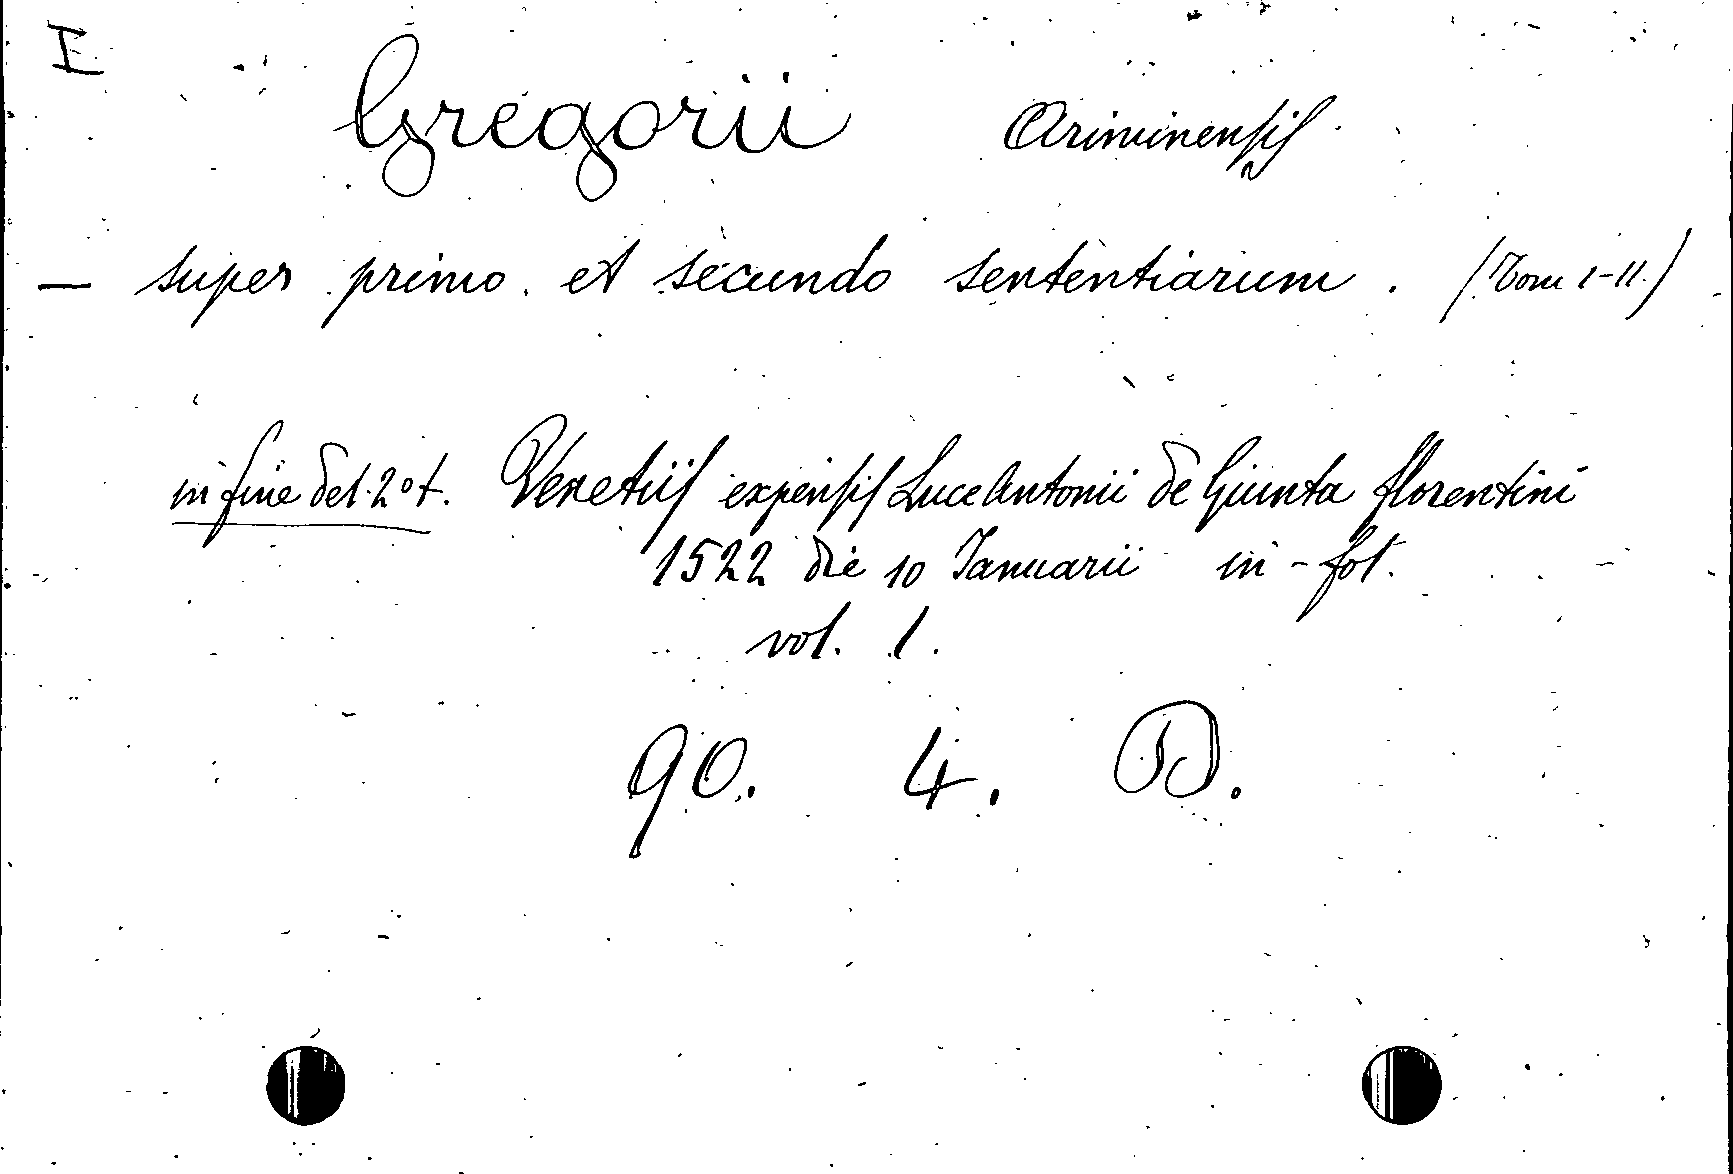 I
Gregorii Ariminensis
— super primo et secundo sententiarum. (Tom I-II.)
in fine del 2° t. Venetiis expensis Luce Antonii de Giunta florentini
1522 die 10 Januarii in-fol.
vol. 1.
90. 4. D.